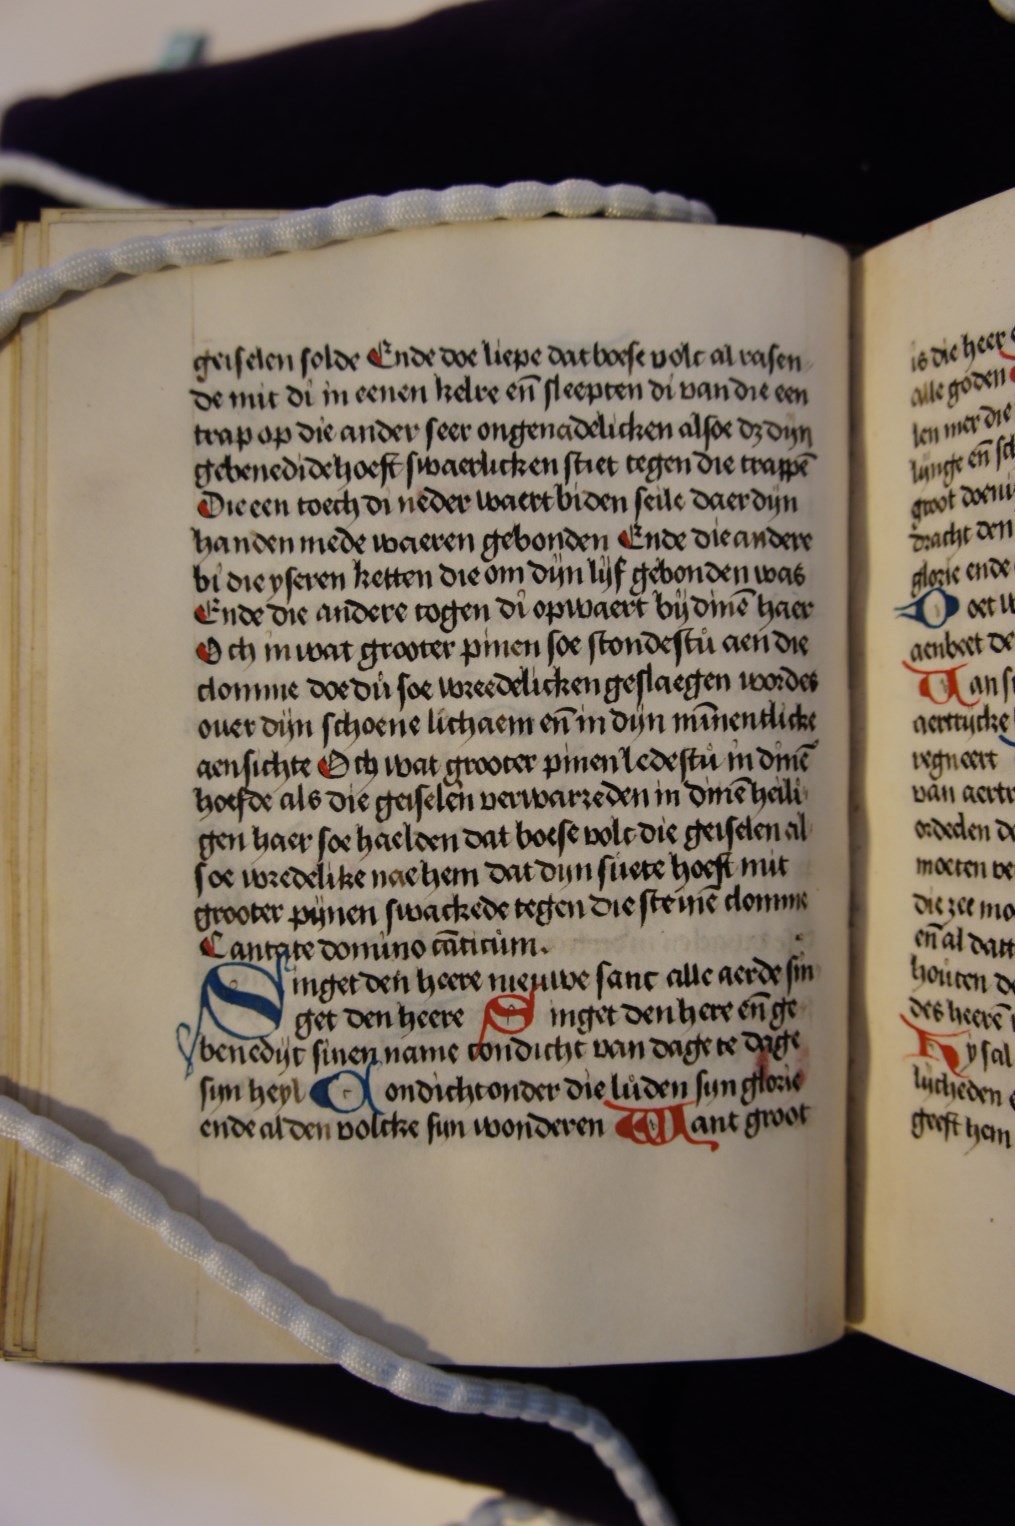 geiselen solde Ende doe liepe dat boese volc al rasen
de mit di in eenen kelre en̄ sleepten di van die een
trap op die ander seer ongenadelicken alsoe dʒ dijn
gebenedide hoeft swaerlicken stiet tegen die trappē
Die een toech di neder waert bi den seile daer dijn
handen mede waeren gebonden Ende die andere
bi die yseren ketten die om dijn lijf gebonden was
Ende die andere togen di opwaert bij dinē haer
Och in wat grooter pinen soe stondestu aen die
clomme doe du soe wreedelicken geslaegen wordes
over dijn schoene lichaem en̄ in dijn minnentlicke
aensichte Och wat grooter pinen ledestu in dinē
hoefde als die geiselen verwarreden in dinē heili
gen haer soe haelden dat boese volc die geiselen al
soe wredelike nae hem dat dijn suete hoeft mit
grooter pijnen swackede tegen die steinē clomme
Cantate domino cāticum.
Singet den heere nieuwe sanc alle aerde sin
get den heere Singet den here en̄ ge
benedijt sinen name condicht van dage te dage
sijn heyl Condicht onder die luden sijn glorie
ende al den volcke sijn wonderen Want groot
is die heer
alle goden
len mer die
lijnge en̄
groot
dracht den
glorie ende
oet
aenbeet de
Van
aertrycke
regneert
van aertr
ordelen d
moeten ve
die zee mo
en̄ al datt
houten d
des heerē
Hy sal
lycheden
geeft hem